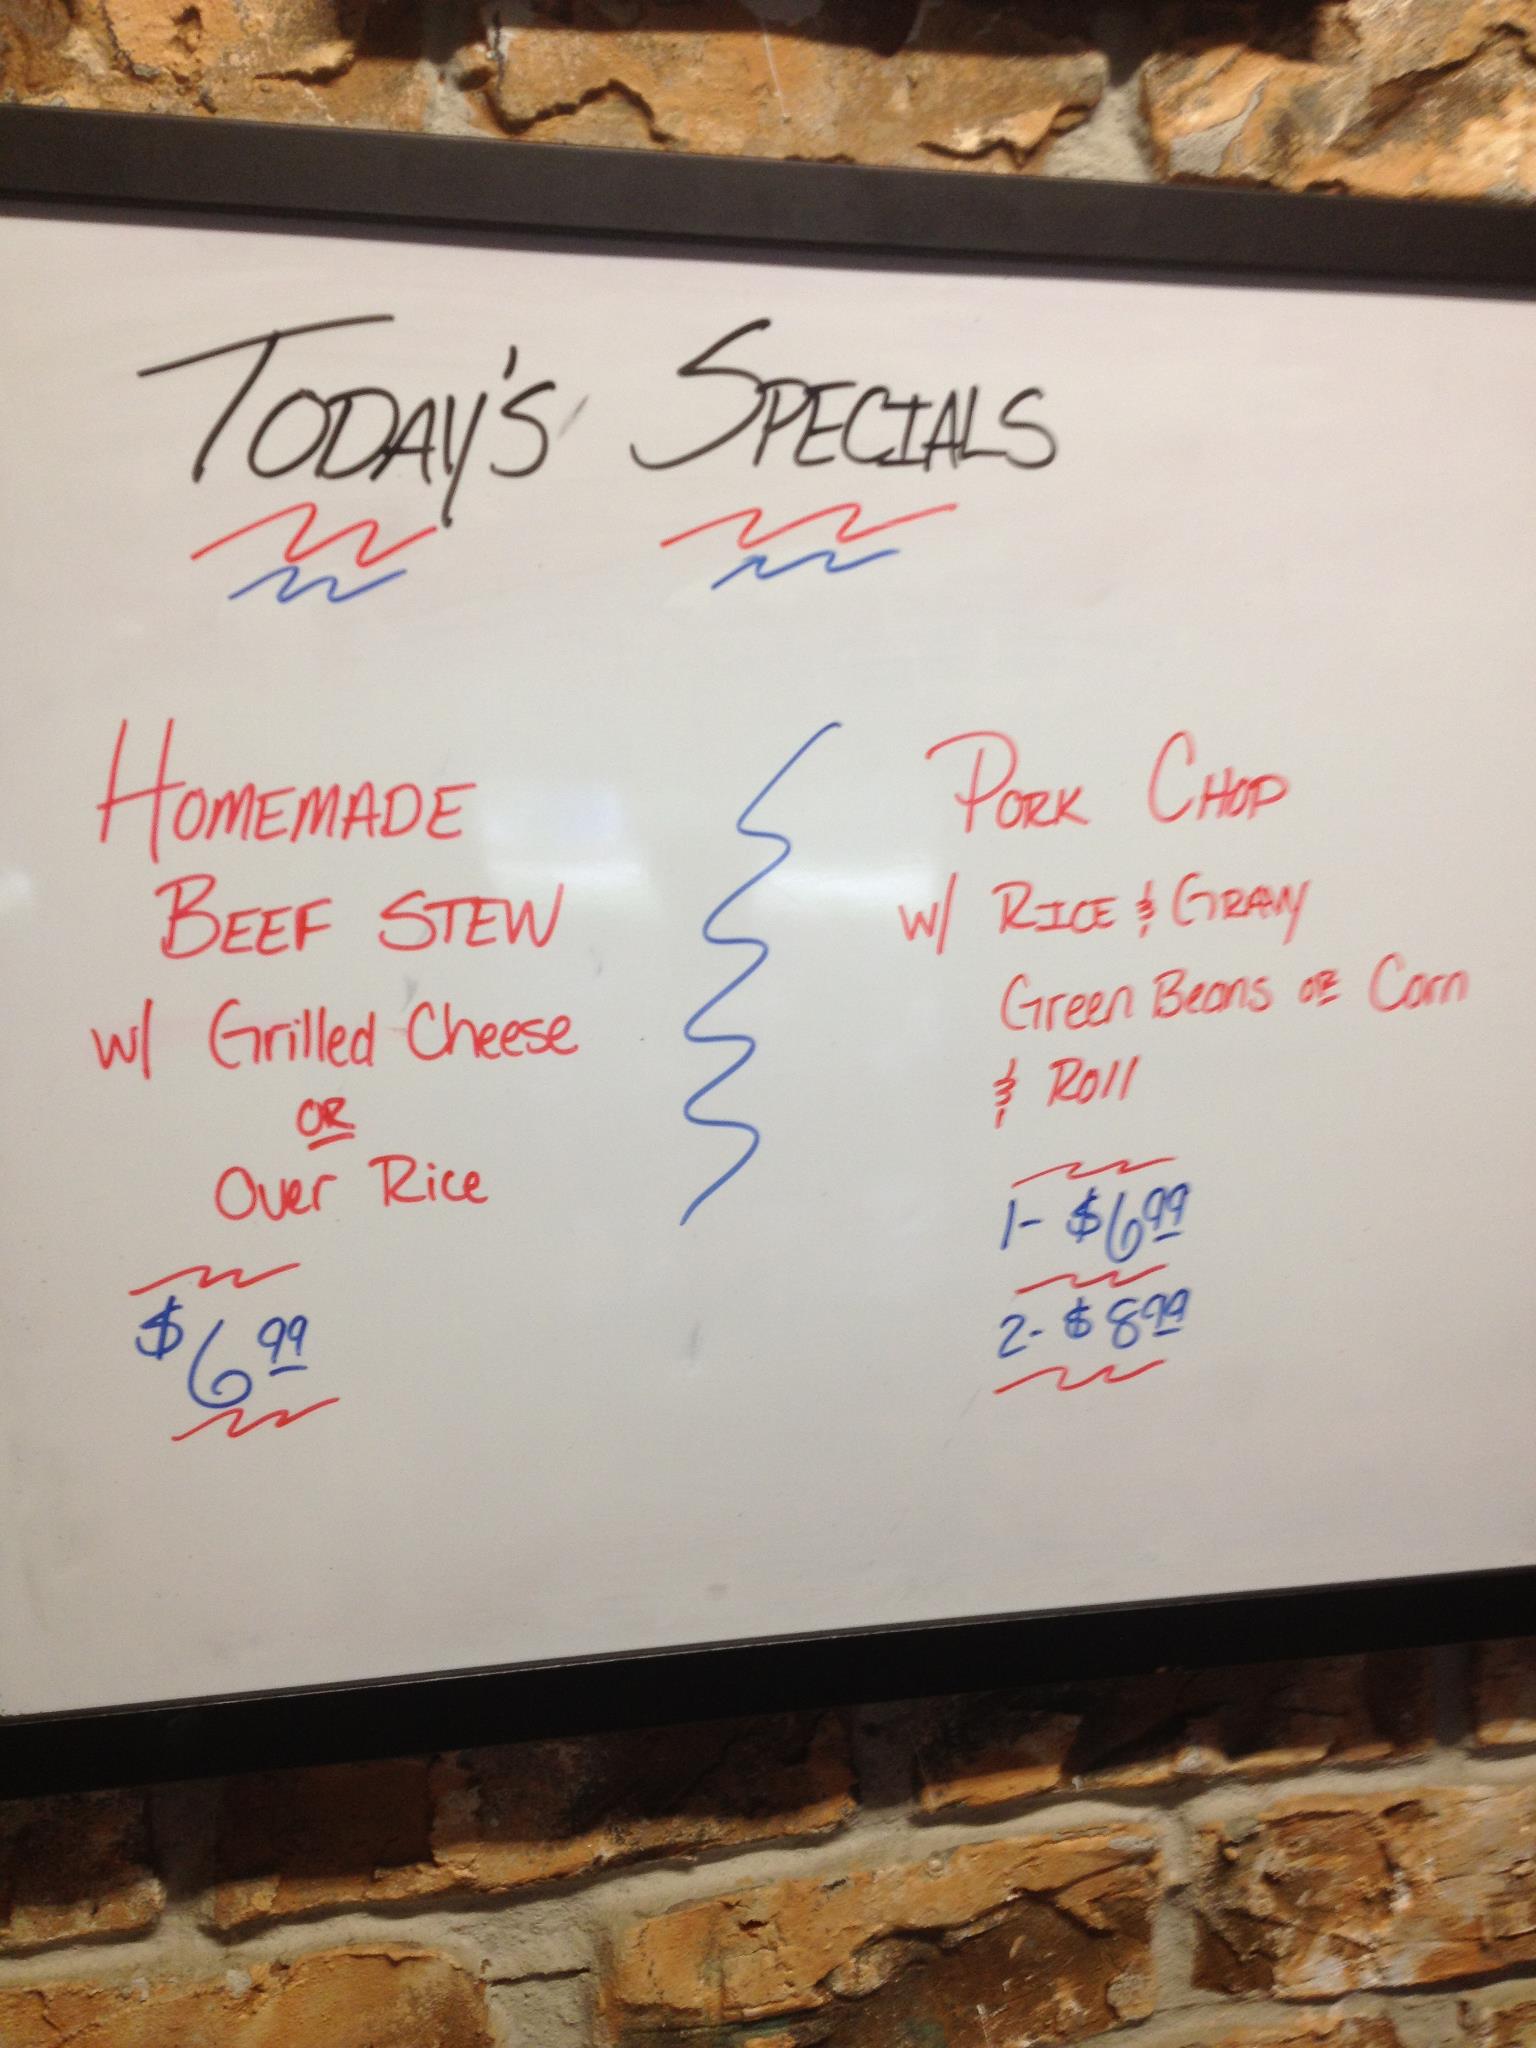 TODAY'S SPECIALS
HOMEMADE
BEEF STEW
w/ Grilled Cheese
OR
Over Rice
$6.99
PORK CHOP
w/ RICE & GRAVY
Green Beans OR Corn
& Roll
1- $6.99
2- $8.99